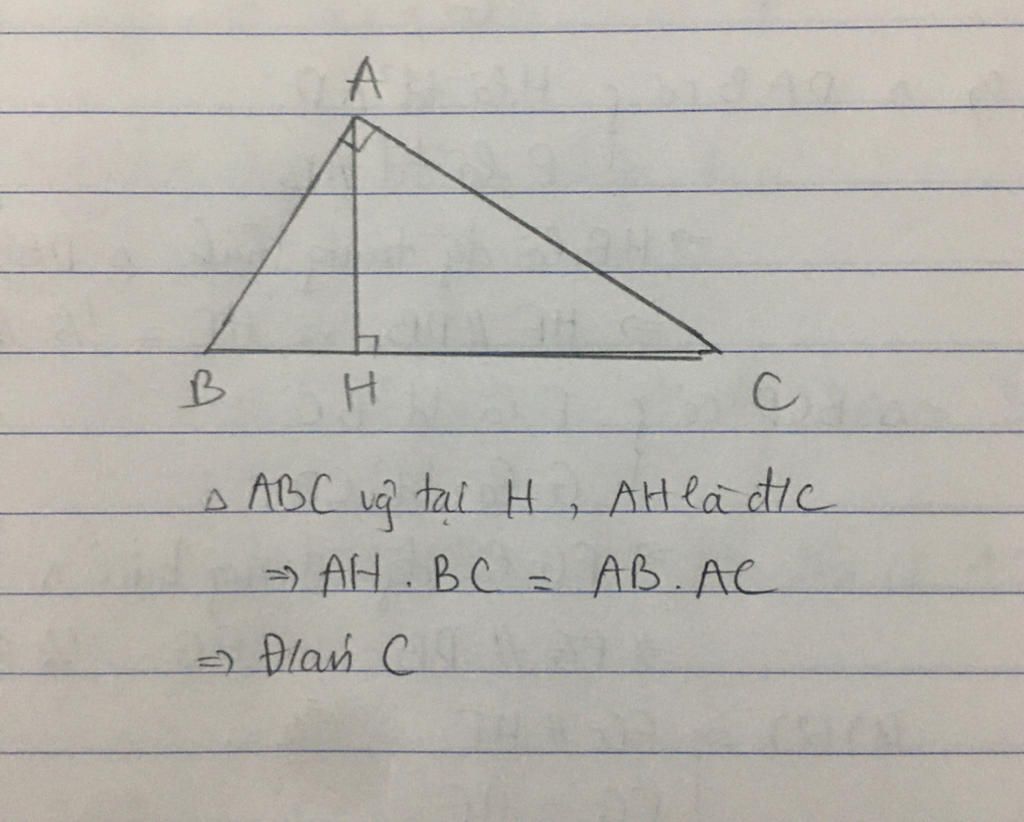 A
B H C
△ ABC vg̃ tại H, AH là đ/c
⇒ AH . BC = AB . AC
⇒ Đ/án C